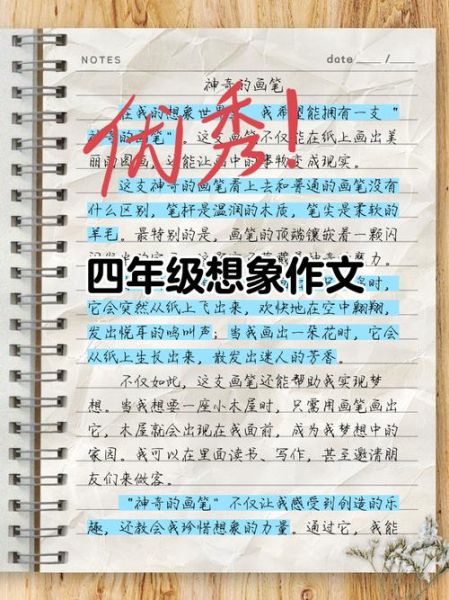 NOTES
date ___ / ___
神奇的画笔
在我的想象世界 我希望能拥有一支“
”。这支画笔不仅能在纸上画出美
丽的图画 还能让画中的事物变成现实。
优秀!
这支神奇的画笔看上去和普通的画笔没有
什么区别,笔杆是温润的木质,笔尖是柔软的
羊毛。最特别的是,画笔的顶端镶嵌着一颗闪
四年级想象作文
它会突然从纸上飞出来,欢快地在空中翱翔,
发出悦耳的鸣叫声;当我画出一朵花时,它会
从纸上生长出来,散发出迷人的芳香。
不仅如此,这支画笔还能帮助我实现梦
想。当我想要一座小木屋时,只需用画笔画出
它,木屋就会出现在我面前,成为我梦想中的
家园。我可以在里面读书、写作,甚至邀请朋
友们来做客。
“神奇的画笔”不仅让我感受到创造的乐
趣,还教会我珍惜想象的力量。通过它,我能